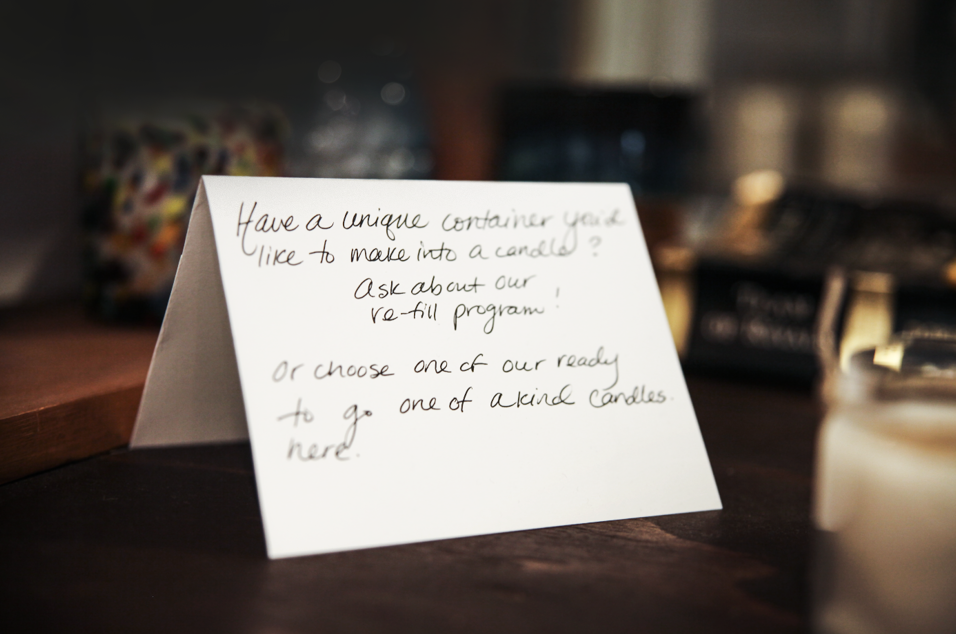 Have a unique container you'd
like to make into a candle?
Ask about our
re-fill program!
Or choose one of our ready
to go one of a kind candles.
here.